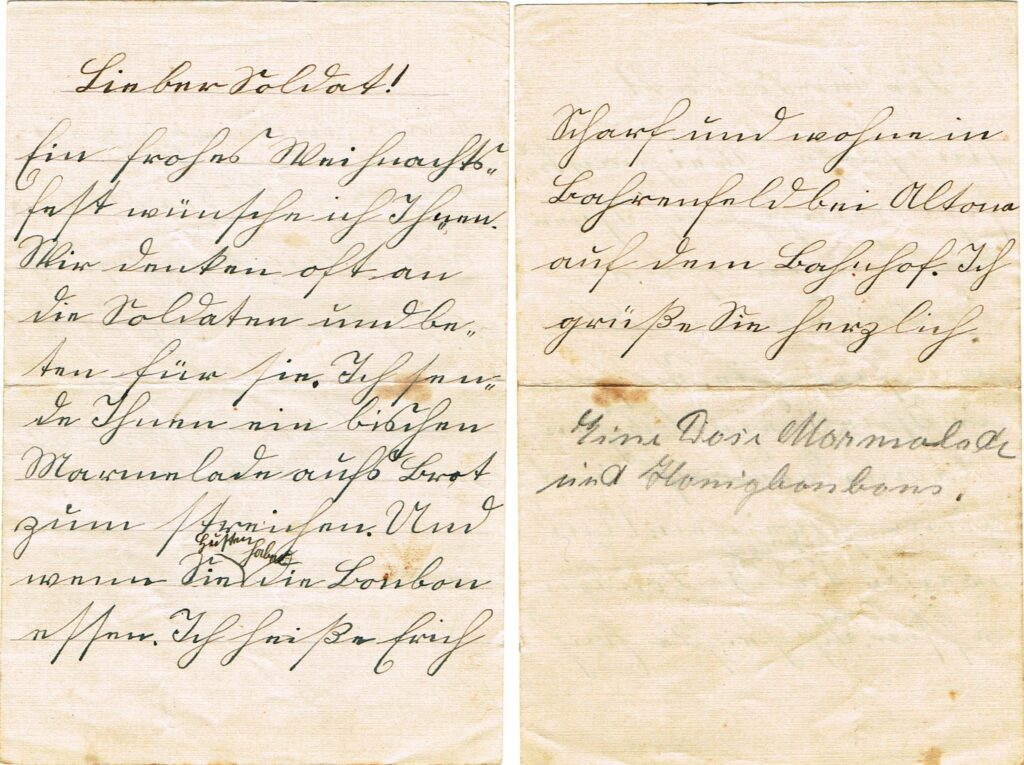 Lieber Soldat!
Ein frohes Weihnachts-
fest wünsche ich Ihnen.
Wir denken oft an
die Soldaten und be-
ten für sie. Ich sen-
de Ihnen ein bischen
Marmelade aufs Brot
zum streichen. Und
Husten haben
wenn Sie die Bonbon
essen. Ich heiße Erich
Scharf und wohne in
Bahrenfeld bei Altona
auf dem Bahnhof. Ich
grüße Sie herzlich.
Eine Dose Marmelade
und Honigbonbons.